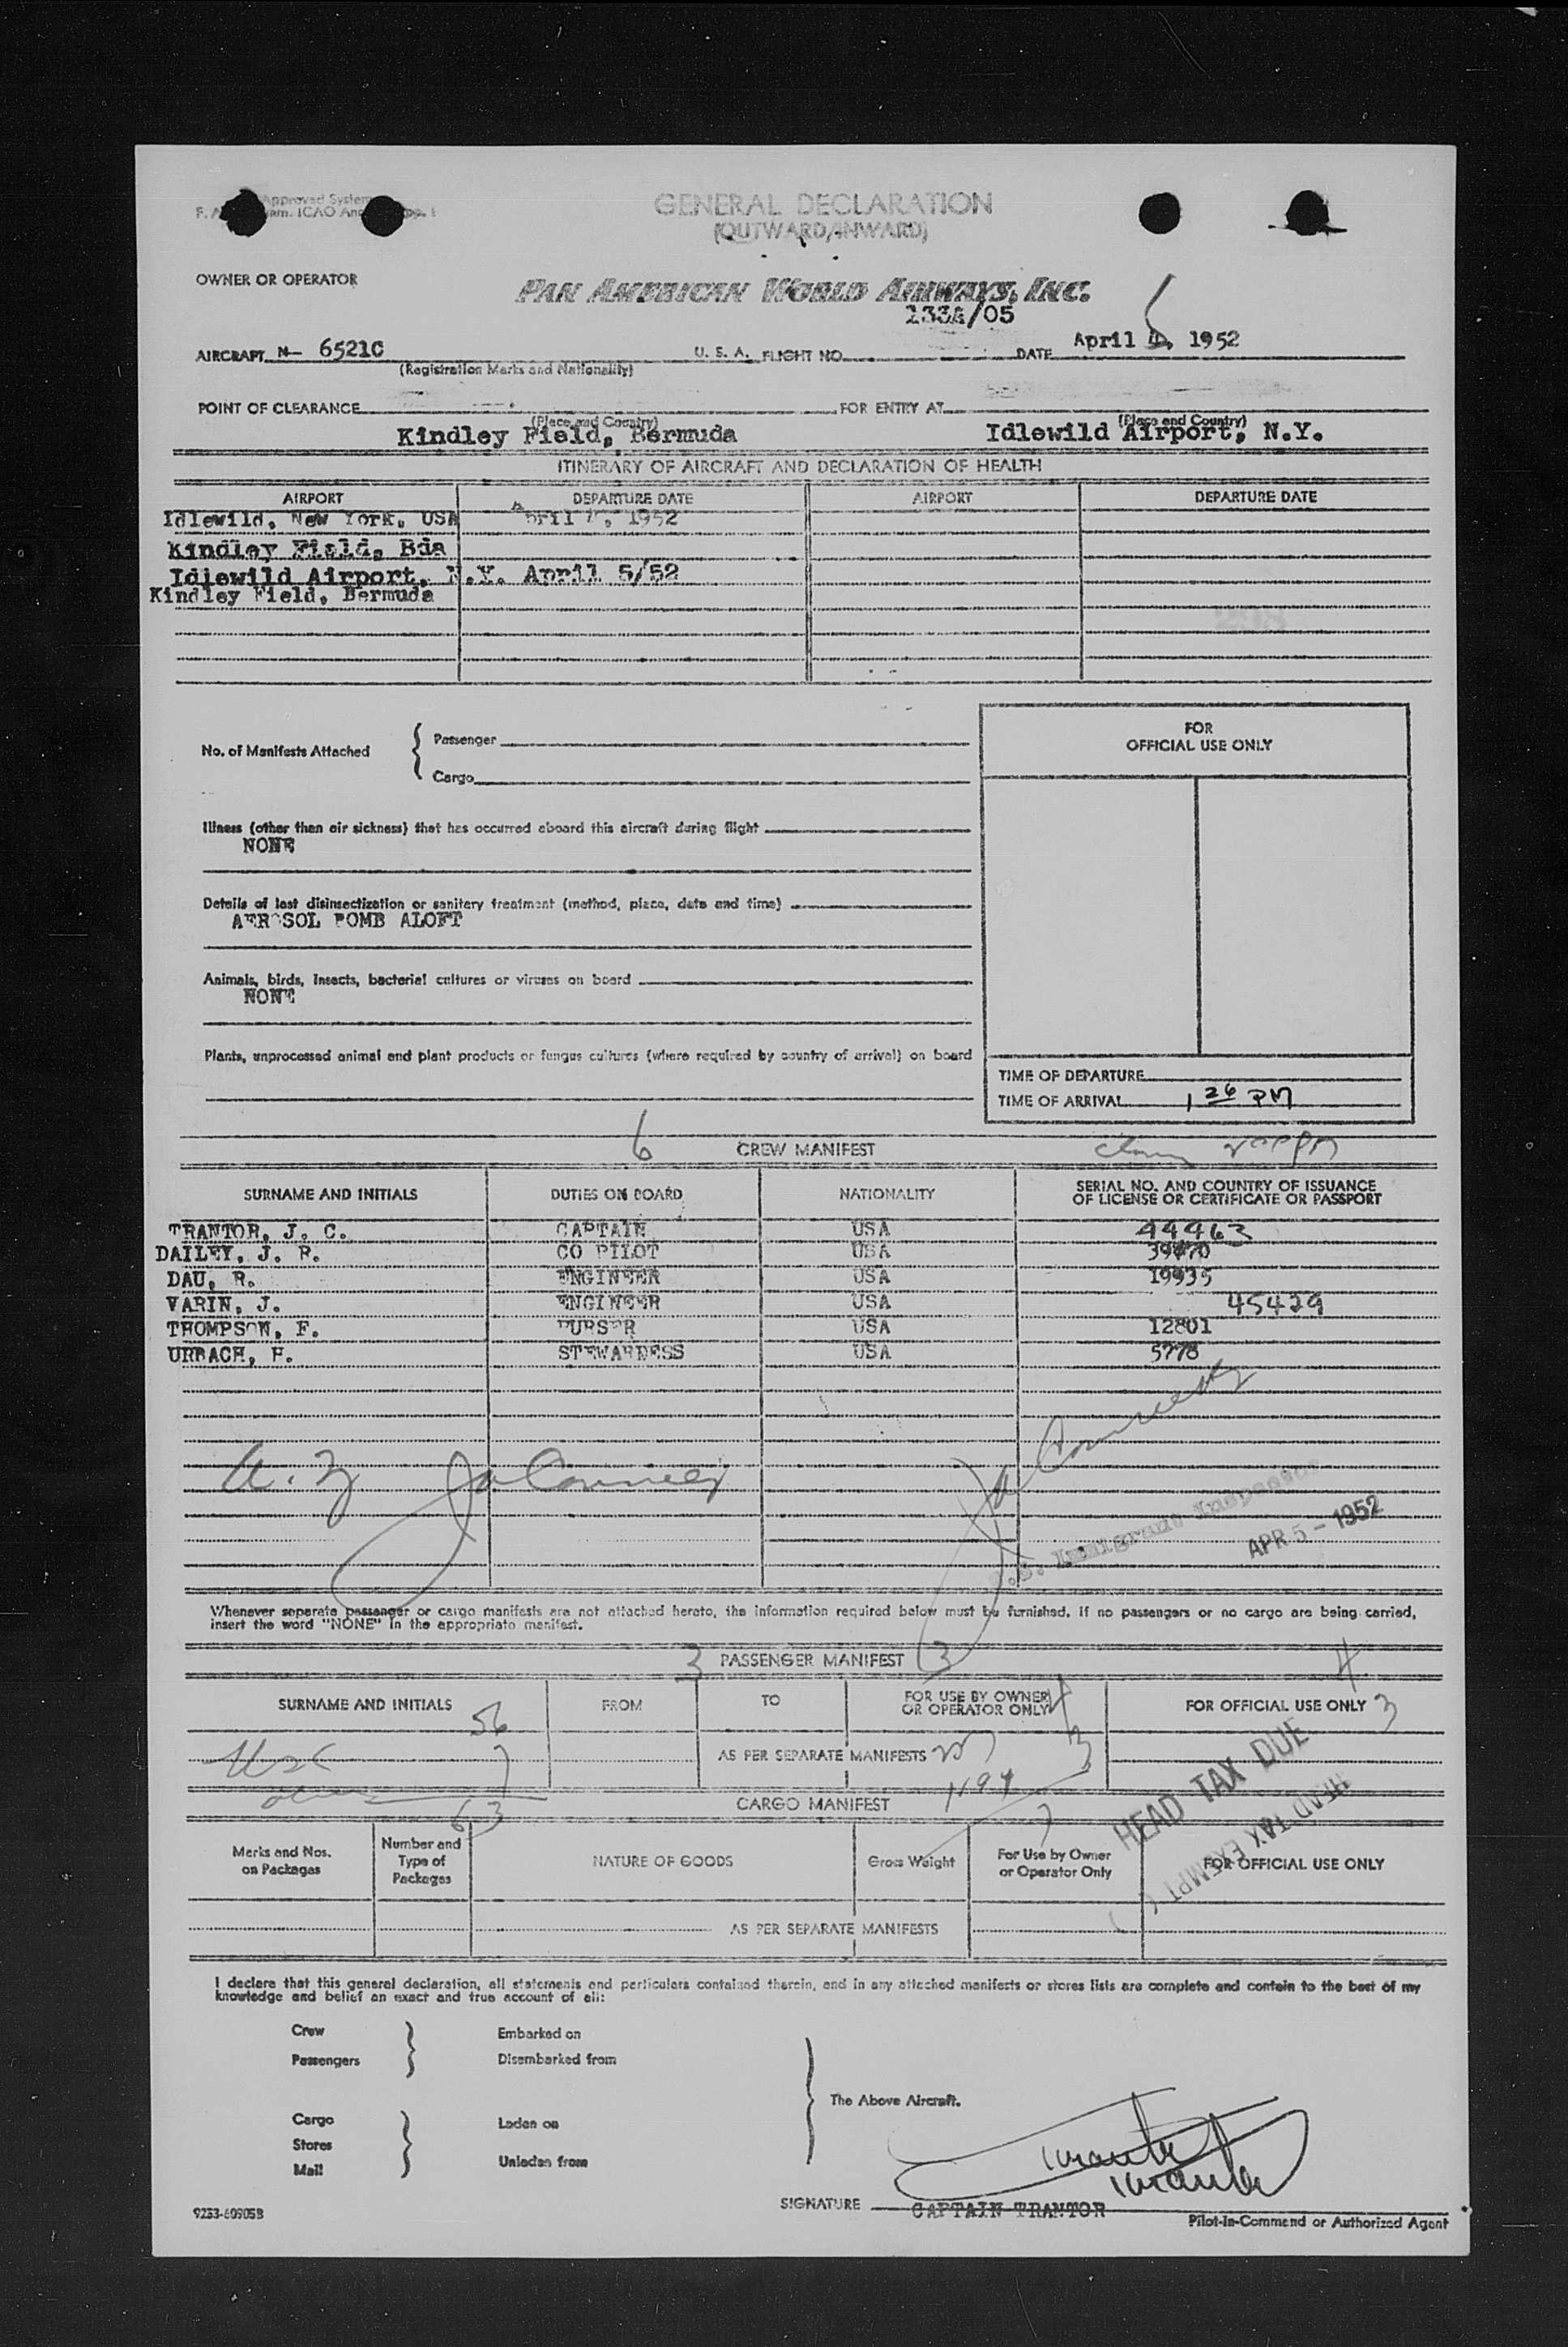 Approved System
GENERAL DECLARATION
(OUTWARD/INWARD)
OWNER OR OPERATOR
PAN AMERICAN WORLD AIRWAYS, INC.
133A/05
AIRCRAFT N- 6521C U. S. A. FLIGHT NO. DATE April 5, 1952
(Registration Marks and Nationality)
POINT OF CLEARANCE FOR ENTRY AT
(Place and Country) (Place and Country)
Kindley Field, Bermuda Idlewild Airport, N.Y.
ITINERARY OF AIRCRAFT AND DECLARATION OF HEALTH
AIRPORT DEPARTURE DATE AIRPORT DEPARTURE DATE
Idlewild, New York, USA April 4, 1952
Kindley Field, Bda
Idlewild Airport, N.Y. April 5/52
Kindley Field, Bermuda
FOR
OFFICIAL USE ONLY
No. of Manifests Attached
Passenger
Cargo
Illness (other than air sickness) that has occurred aboard this aircraft during flight
NONE
Details of last disinsectization or sanitary treatment (method, place, date and time)
AEROSOL BOMB ALOFT
Animals, birds, insects, bacterial cultures or viruses on board
NONE
Plants, unprocessed animal and plant products or fungus cultures (where required by country of arrival) on board
TIME OF DEPARTURE
TIME OF ARRIVAL 1 26 PM
6 CREW MANIFEST
SURNAME AND INITIALS DUTIES ON BOARD NATIONALITY SERIAL NO. AND COUNTRY OF ISSUANCE
OF LICENSE OR CERTIFICATE OR PASSPORT
TRANTOR, J. C. CAPTAIN USA 44463
DAILEY, J. R. CO PILOT USA 39470
DAU, R. ENGINEER USA 19935
VARIN, J. ENGINEER USA 45429
THOMPSON, F. PURSER USA 12801
URBACH, H. STEWARDESS USA 5778
U.S. Immigrant Inspector
APR 5 - 1952
Whenever separate passenger or cargo manifests are not attached hereto, the information required below must be furnished. If no passengers or no cargo are being carried,
insert the word "NONE" in the appropriate manifest.
3 PASSENGER MANIFEST 3 4
SURNAME AND INITIALS FROM TO FOR USE BY OWNER
OR OPERATOR ONLY 4 FOR OFFICIAL USE ONLY 3
56
AS PER SEPARATE MANIFESTS 3
7
63
HEAD TAX DUE
HEAD TAX EXEMPT
CARGO MANIFEST
Marks and Nos.
on Packages
Number and
Type of
Packages
NATURE OF GOODS
Gross Weight
For Use by Owner
or Operator Only
FOR OFFICIAL USE ONLY
AS PER SEPARATE MANIFESTS
I declare that this general declaration, all statements and particulars contained therein, and in any attached manifests or stores lists are complete and contain to the best of my
knowledge and belief an exact and true account of all:
Crew Embarked on
Passengers Disembarked from
The Above Aircraft.
Cargo Laden on
Stores
Mail Unladen from
SIGNATURE CAPTAIN TRANTOR
9233-60905B Pilot-in-Command or Authorized Agent